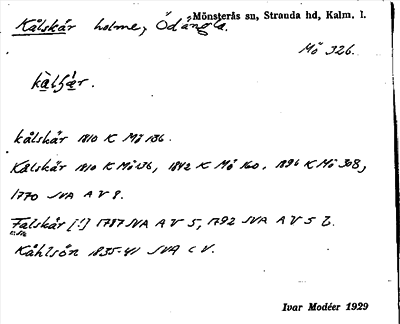 Kålskär holme, Ödängla. Mönsterås sn, Stranda hd, Kalm. l.
Mö 326.
kålskär 1810 K Mö 136.
Kålskär 1810 K Mö 136, 1842 K Mö 160. 1896 K Mö 308,
1770 SVA A V 8.
Falskär [!] 1787 SVA A V 5, 1792 SVA A V 5 b.
Kåhlsön 1835-41 SVA C V.
Ivar Modéer 1929